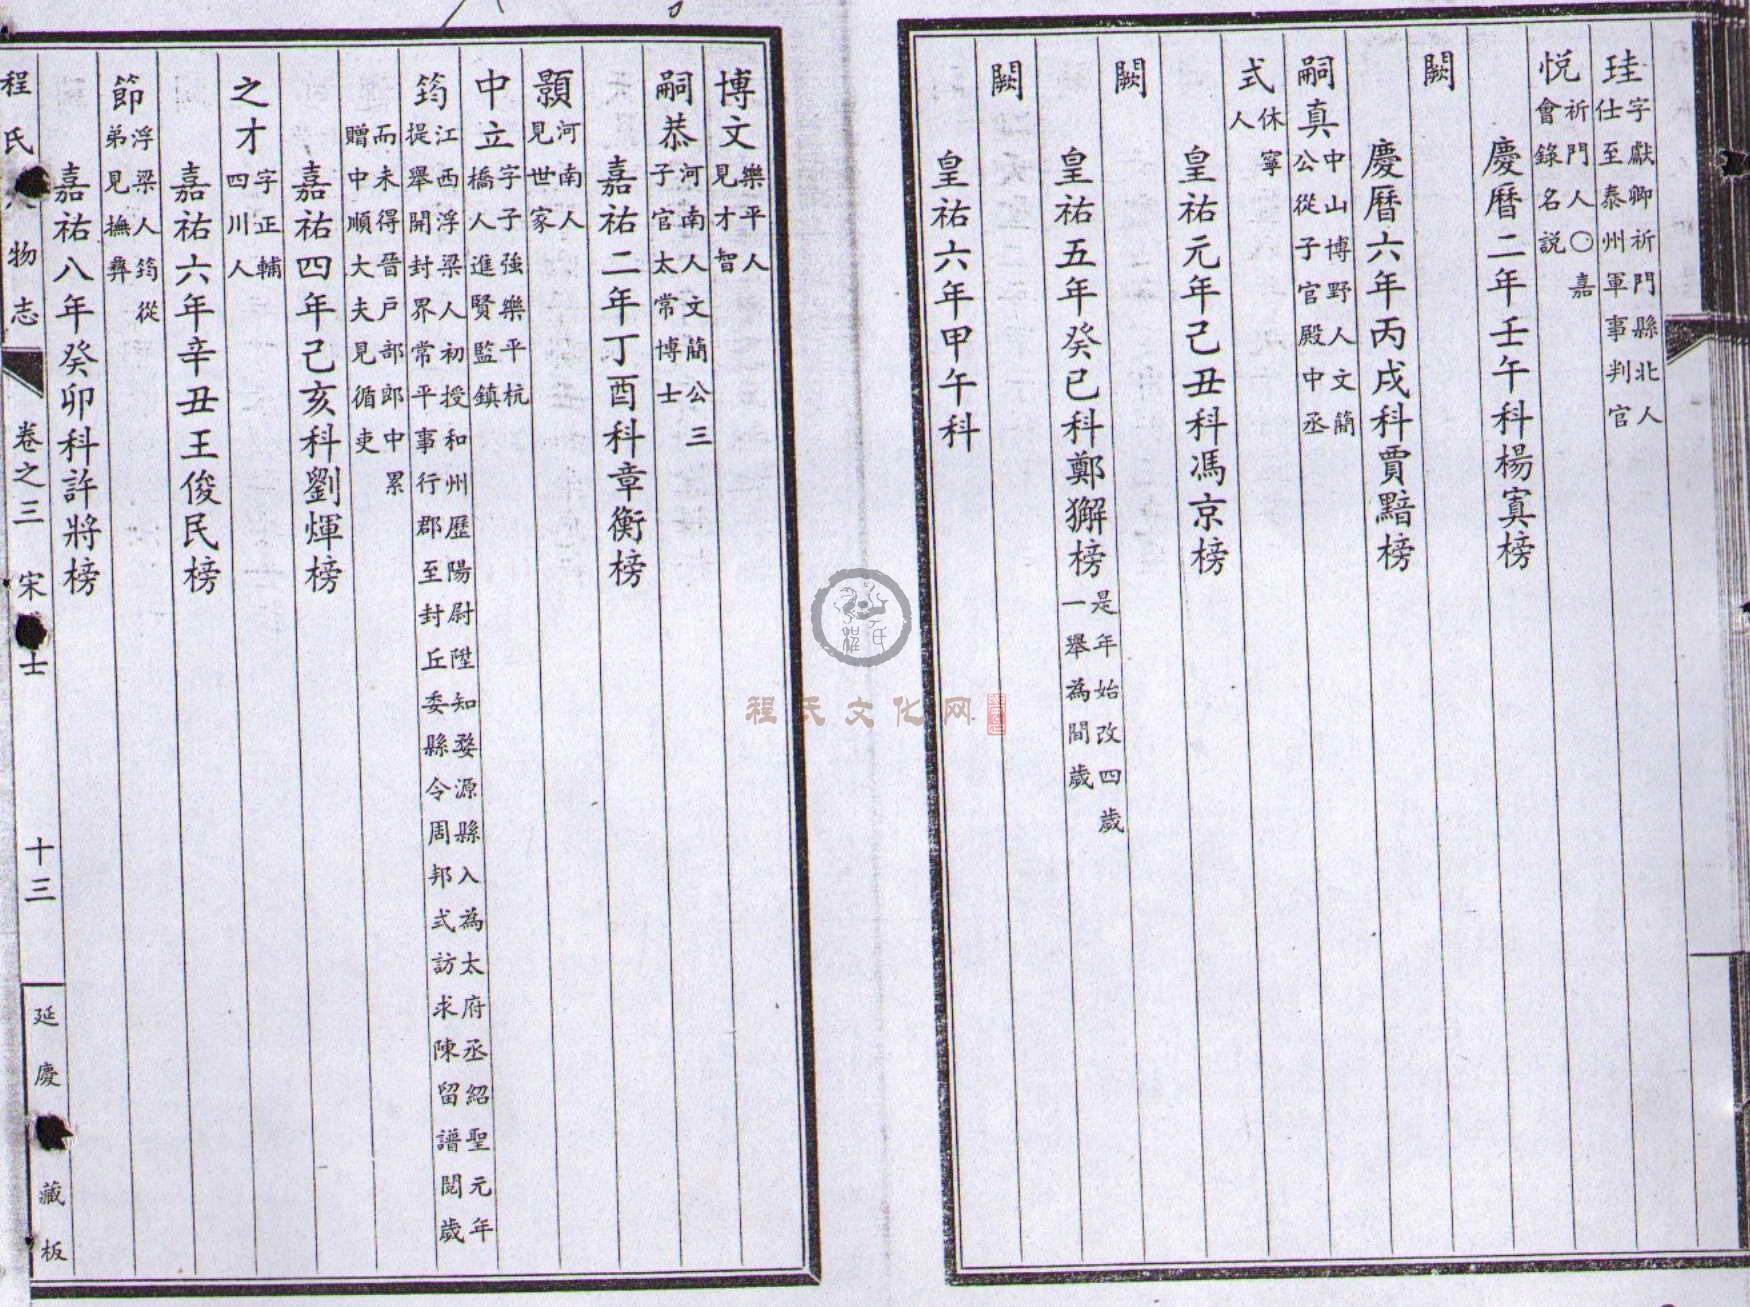 珪字獻卿祈門縣北人
仕至泰州軍事判官
悅祈門人〇嘉
會錄名説
慶曆二年壬午科楊寘榜
闕
慶曆六年丙戌科賈黯榜
嗣真中山博野人文簡
公從子官殿中丞
式休寧
人
皇祐元年己丑科馮京榜
闕
皇祐五年癸巳科鄭獬榜是年始改四歲
一舉為間歲
闕
皇祐六年甲午科
博文樂平人
見才智
嗣恭河南人文簡公三
子官太常博士
嘉祐二年丁酉科章衡榜
顥河南人
見世家
中立字子強樂平杭
橋人進賢監鎮
筠江西浮梁人初授和州歷陽尉陞知婺源縣入為太府丞紹聖元年
提舉開封界常平事行郡至封丘委縣令周邦式訪求陳留譜閱歲
而未得晉戶部郎中累
贈中順大夫見循吏
嘉祐四年己亥科劉煇榜
之才字正輔
四川人
嘉祐六年辛丑王俊民榜
節浮梁人筠從
弟見撫彝
嘉祐八年癸卯科許將榜
程氏人物志 卷之三 宋 士 十三 延慶 藏板
程氏文化网